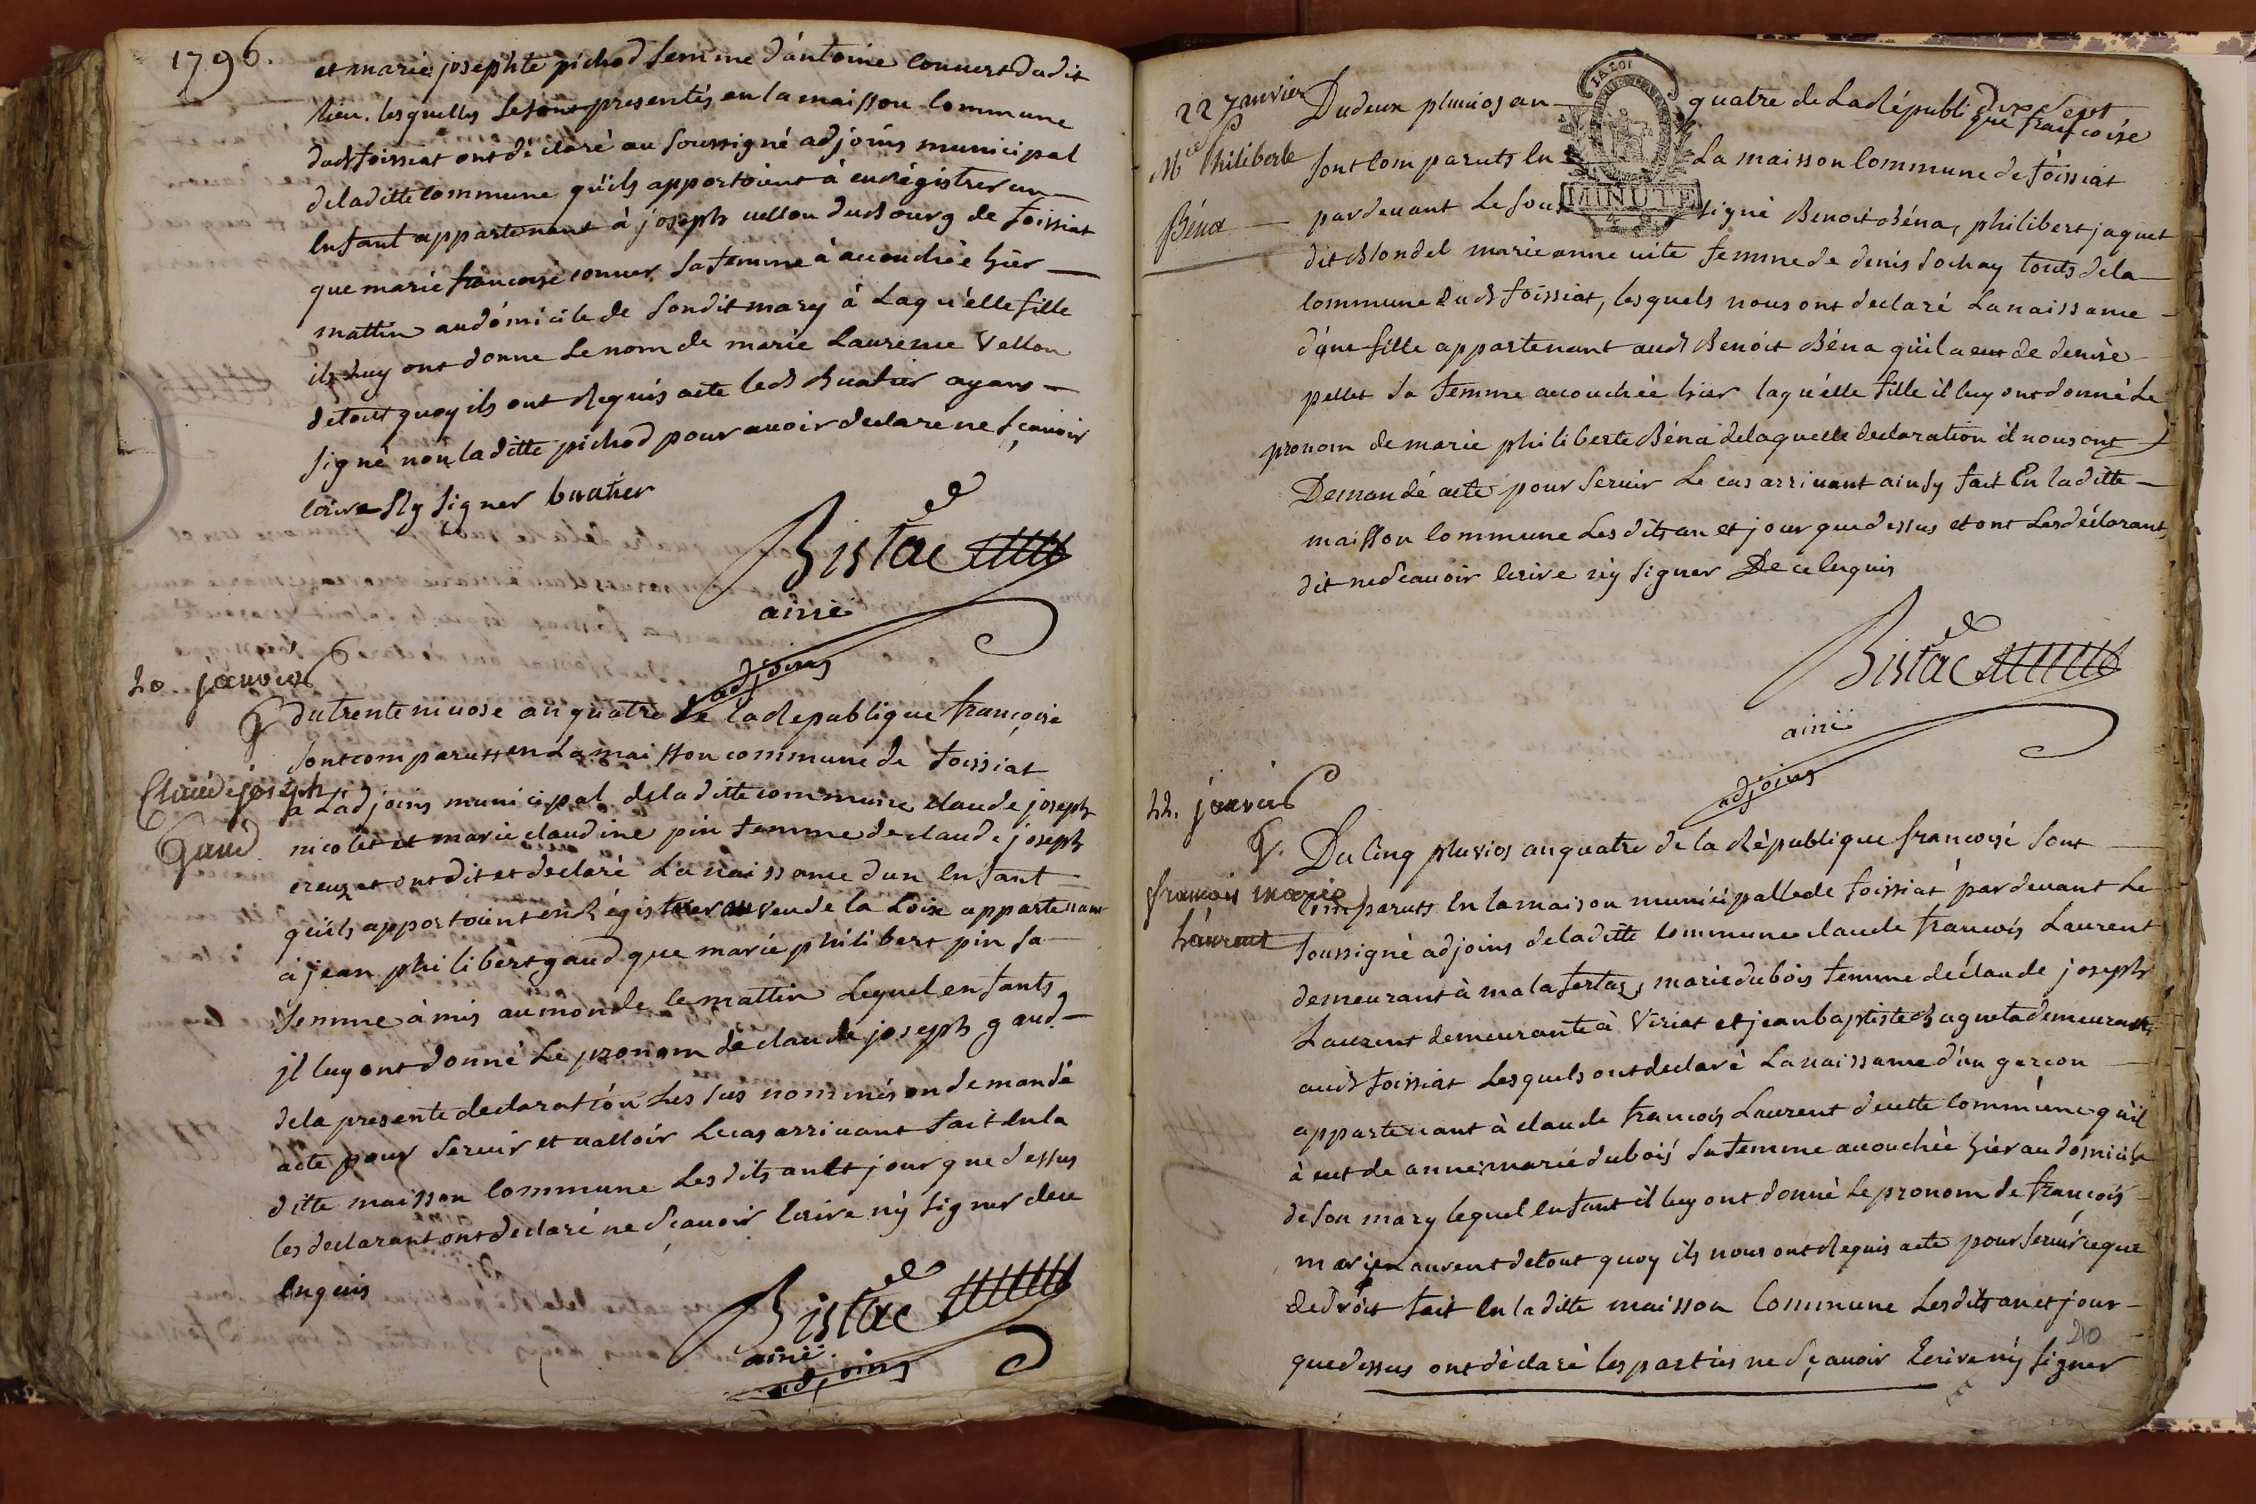 1796.
et marie josephte pichod femme d'antoine convert dudit
lieu. lesquelles se sont presentés en la maisson commune
dud foissiat ont déclaré au soussigné adjoins municipal
de laditte commune qu'ils apportoient à enrégistrer un
enfant appartenant à joseph vellon dud bourg de foissiat
que marie francoise conver sa femme à acouchée hier
mattin au domicile de sondit mary à laqu'elle fille
ils luy ont donne le nom de marie Laurence Vellon
de tout quoy ils ont Requis acte led buatier ayans
signé non laditte pichod pour avoir declaré ne sçavoir
écrire n'y signer buatier
Bistac
ainé
adjoins
20. janvier
Claude joseph
Gaud
du trente nivose an quatre de la Republique françoise
sont comparust en la maisson commune de foissiat
a Ladjoins municipal de laditte commune claude joseph
nicolet et marie claudine pin femme de claude joseph
creuz et ont dit et declaré La naissance dun enfant
qu'ils apportoient enRégistrer au veu de la Loix appartenant
à jean philibert gaud que marie philibert pin sa
femme à mis au monde le mattin Lequel enfants
jl luy ont donné Le pronom de claude joseph gaud
de la presente declaration Les sus nommés on demandé
acte pour servir et valloir Le cas arrivant fait en la
ditte maisson commune Lesdits an et jour que dessus
les declarant ont declaré ne sçavoir écrire ny signer dece
enquis
Bistac
ainé
adjoins
22 janvier
Mce Philiberte
Béna
Du deux pluvios an quatre de La Républi que françoise
dix sept
LA LOI
MINUTE
sont comparuts en La maisson commune de foissiat
par devant Le sous signé Benoit Béna, philibert jaquet
dit Blondel marie anne vite femme de denis sochay touts de la
commune dud foissiat, lesquels nous ont declaré La naissance
d'une fille appartenant aud Benoit Béna qu'il a eut de denise
pellet sa femme acouchée hier laqu'elle fille il luy ont donné Le
pronom de marie philiberte Béna de laquelle declaration il nous ont
Demandé acte pour servir Le cas arrivant ainsy fait En laditte
maisson commune Lesdits an et jour que dessus et ont Les déclarant
dit ne sçavoir écrire n'y signer De ce enquis
Bistac
ainé
adjoins
22. janvier
francois marie
Laurent
Du Cinq pluvios an quatre de la République francoise sont
comparust en la maison municipalle de foissiat par devant Le
soussigné adjoins de laditte commune claude francois Laurent
demeurant à malafertaz, marie dubois femme de claude joseph
Laurent demeurante à Viriat et jean baptiste demeurant
aud foissiat Lesquels ont declaré La naissance d'un garcon
appartenant à claude francois Laurent de cette commune qu'il
à eut de anne marie dubois sa femme acouchée hier au domicile
de son mary lequel enfant il luy ont donné Le pronom de françois
marie Laurent de tout quoy ils nous ont Requis acte pour servir ce que
de Droit fait en la ditte maisson Commune Lesdits an et jour
que dessus ont déclaré les parties ne sçavoir écrire ny signer
210